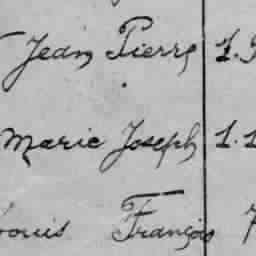 Jean Pierre 1.
Marie Joseph 1.1
Louis François 7